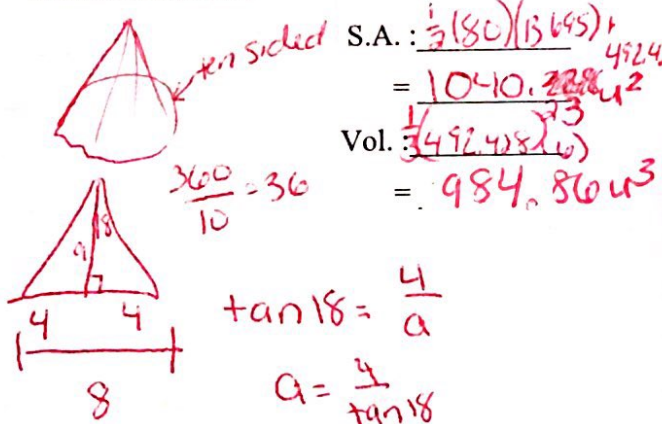 ten sided
S.A. : ½(80)(13.695)+
492.4
= 1040.23 u²
Vol. : ⅓(492.428)(6)
= 984.86 u³
360/10 = 36
18
a
4 4
8
tan 18 = 4/a
a = 4/tan 18